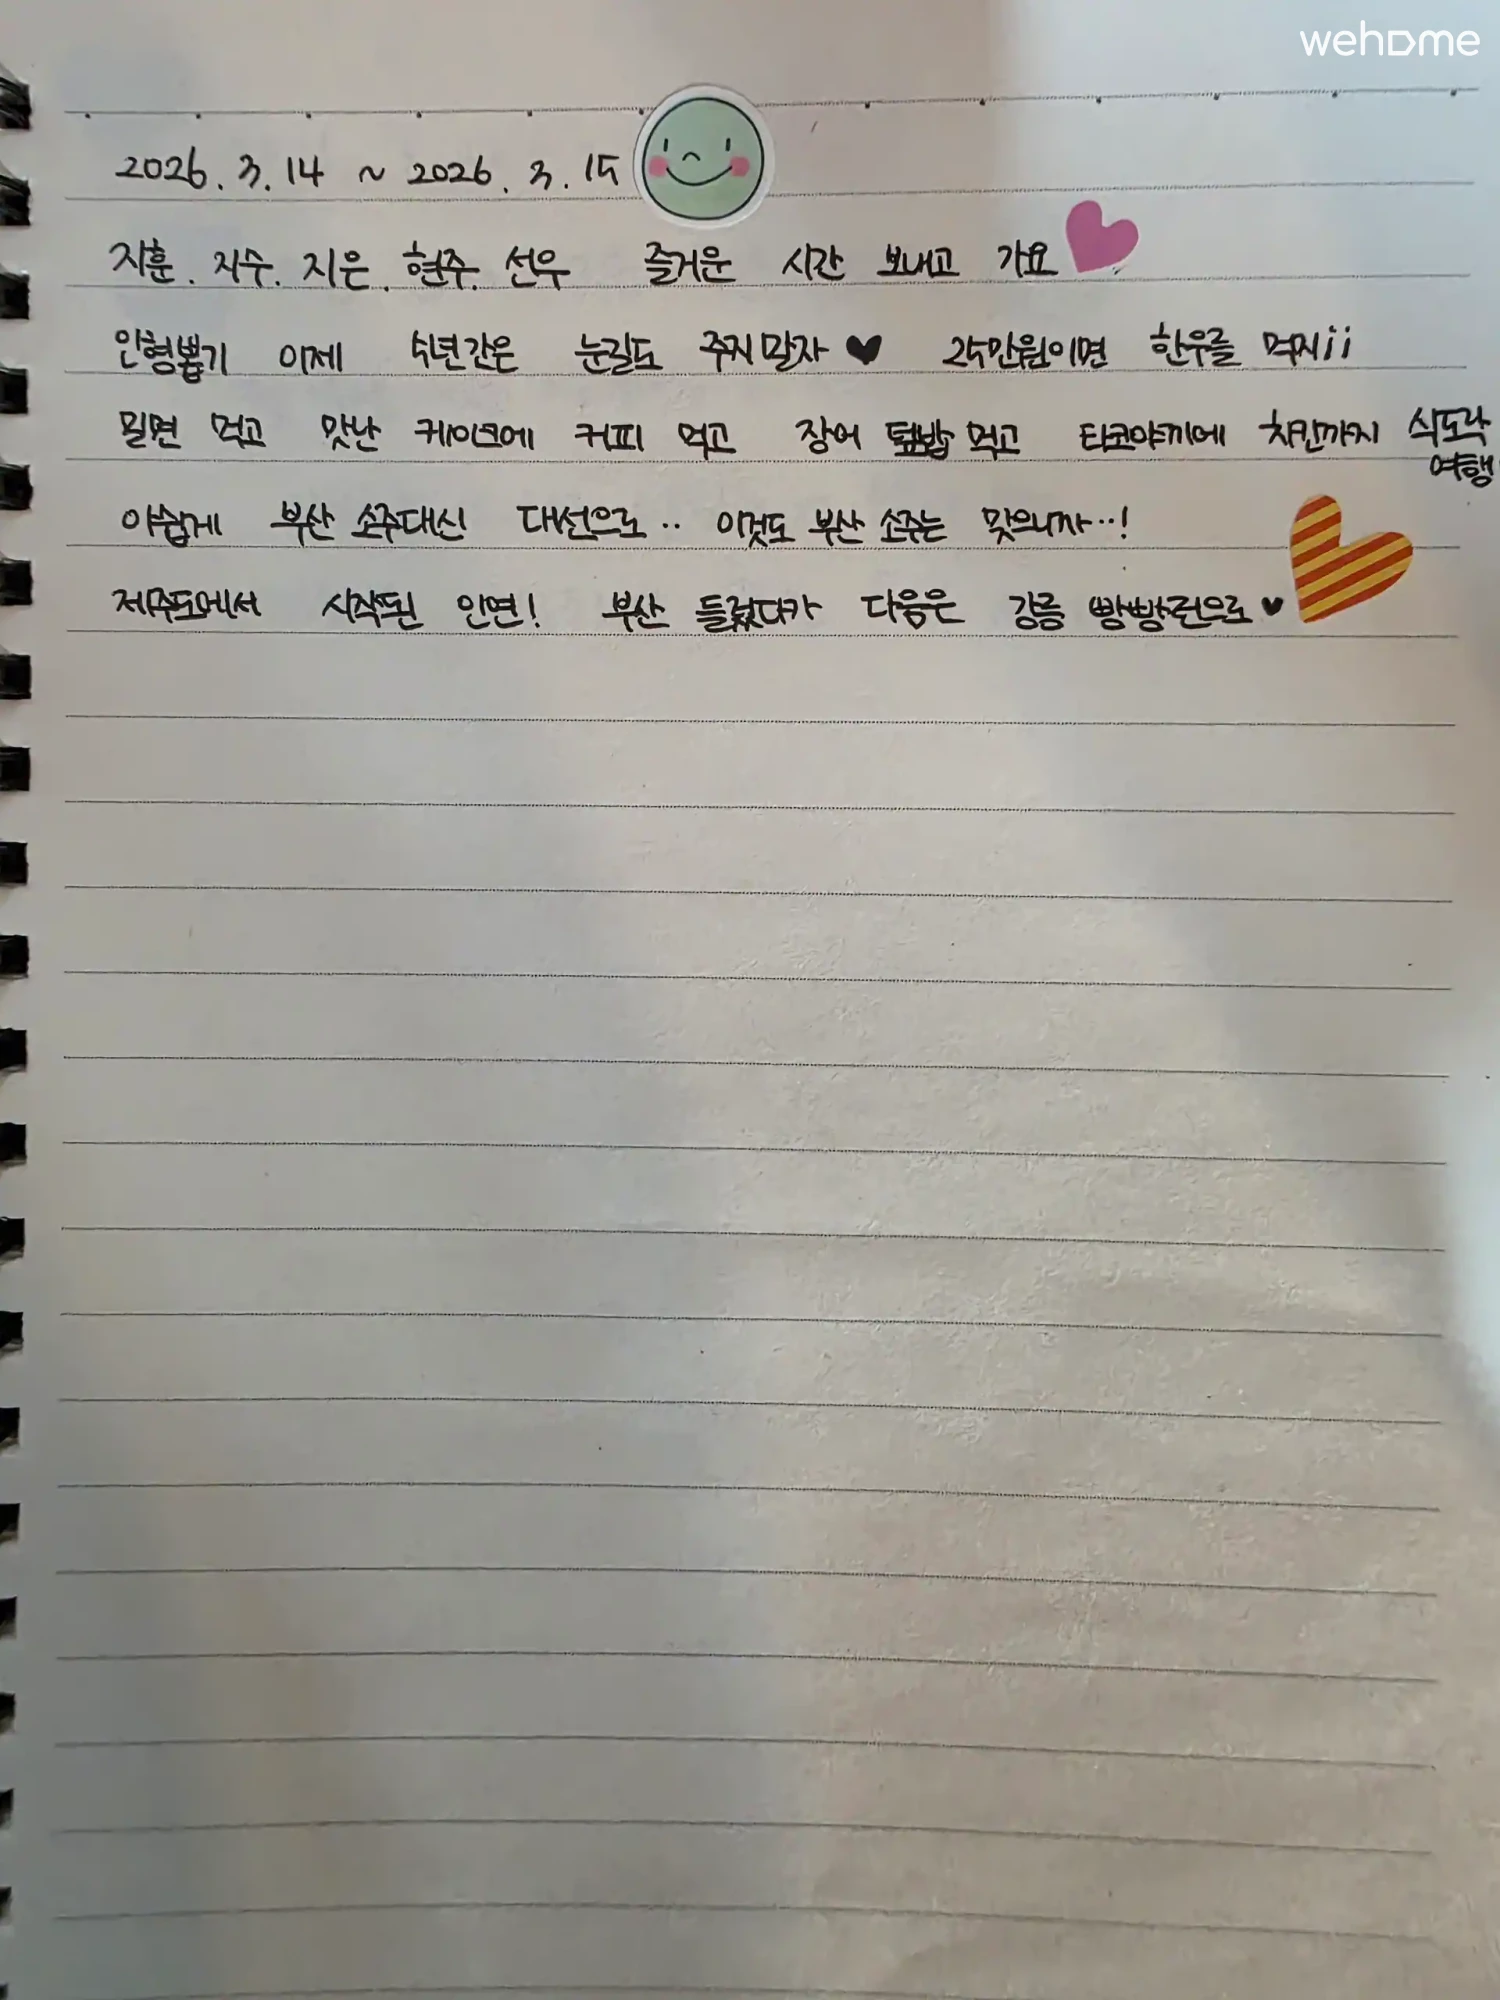 wehome
2026. 3. 14 ~ 2026. 3. 15
지훈. 지수. 지은. 현주. 선우 즐거운 시간 보내고 가요
인형뽑기 이제 5년간은 눈길도 주지말자 ♥ 25만원이면 한우를 먹지ii
밀면 먹고 맛난 케이크에 커피 먹고 장어 덮밥 먹고 타코야끼에 치킨까지 식도락
여행
아쉽게 부산 소주대신 대선으로.. 이것도 부산 소주는 맞으니까..!
제주도에서 시작된 인연! 부산 들렀다가 다음은 강릉 빵빵런으로 ♥